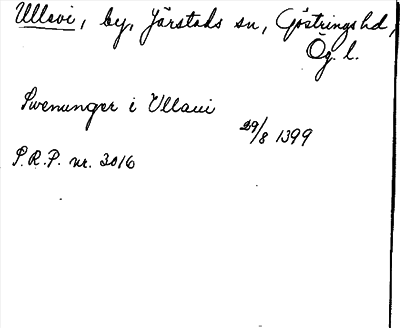 Ullevi, by, Järstads sn, Göstrings hd,
Ög. l.
Swenunger i Ullaui
29/8 1399
S.R.P. nr. 3016